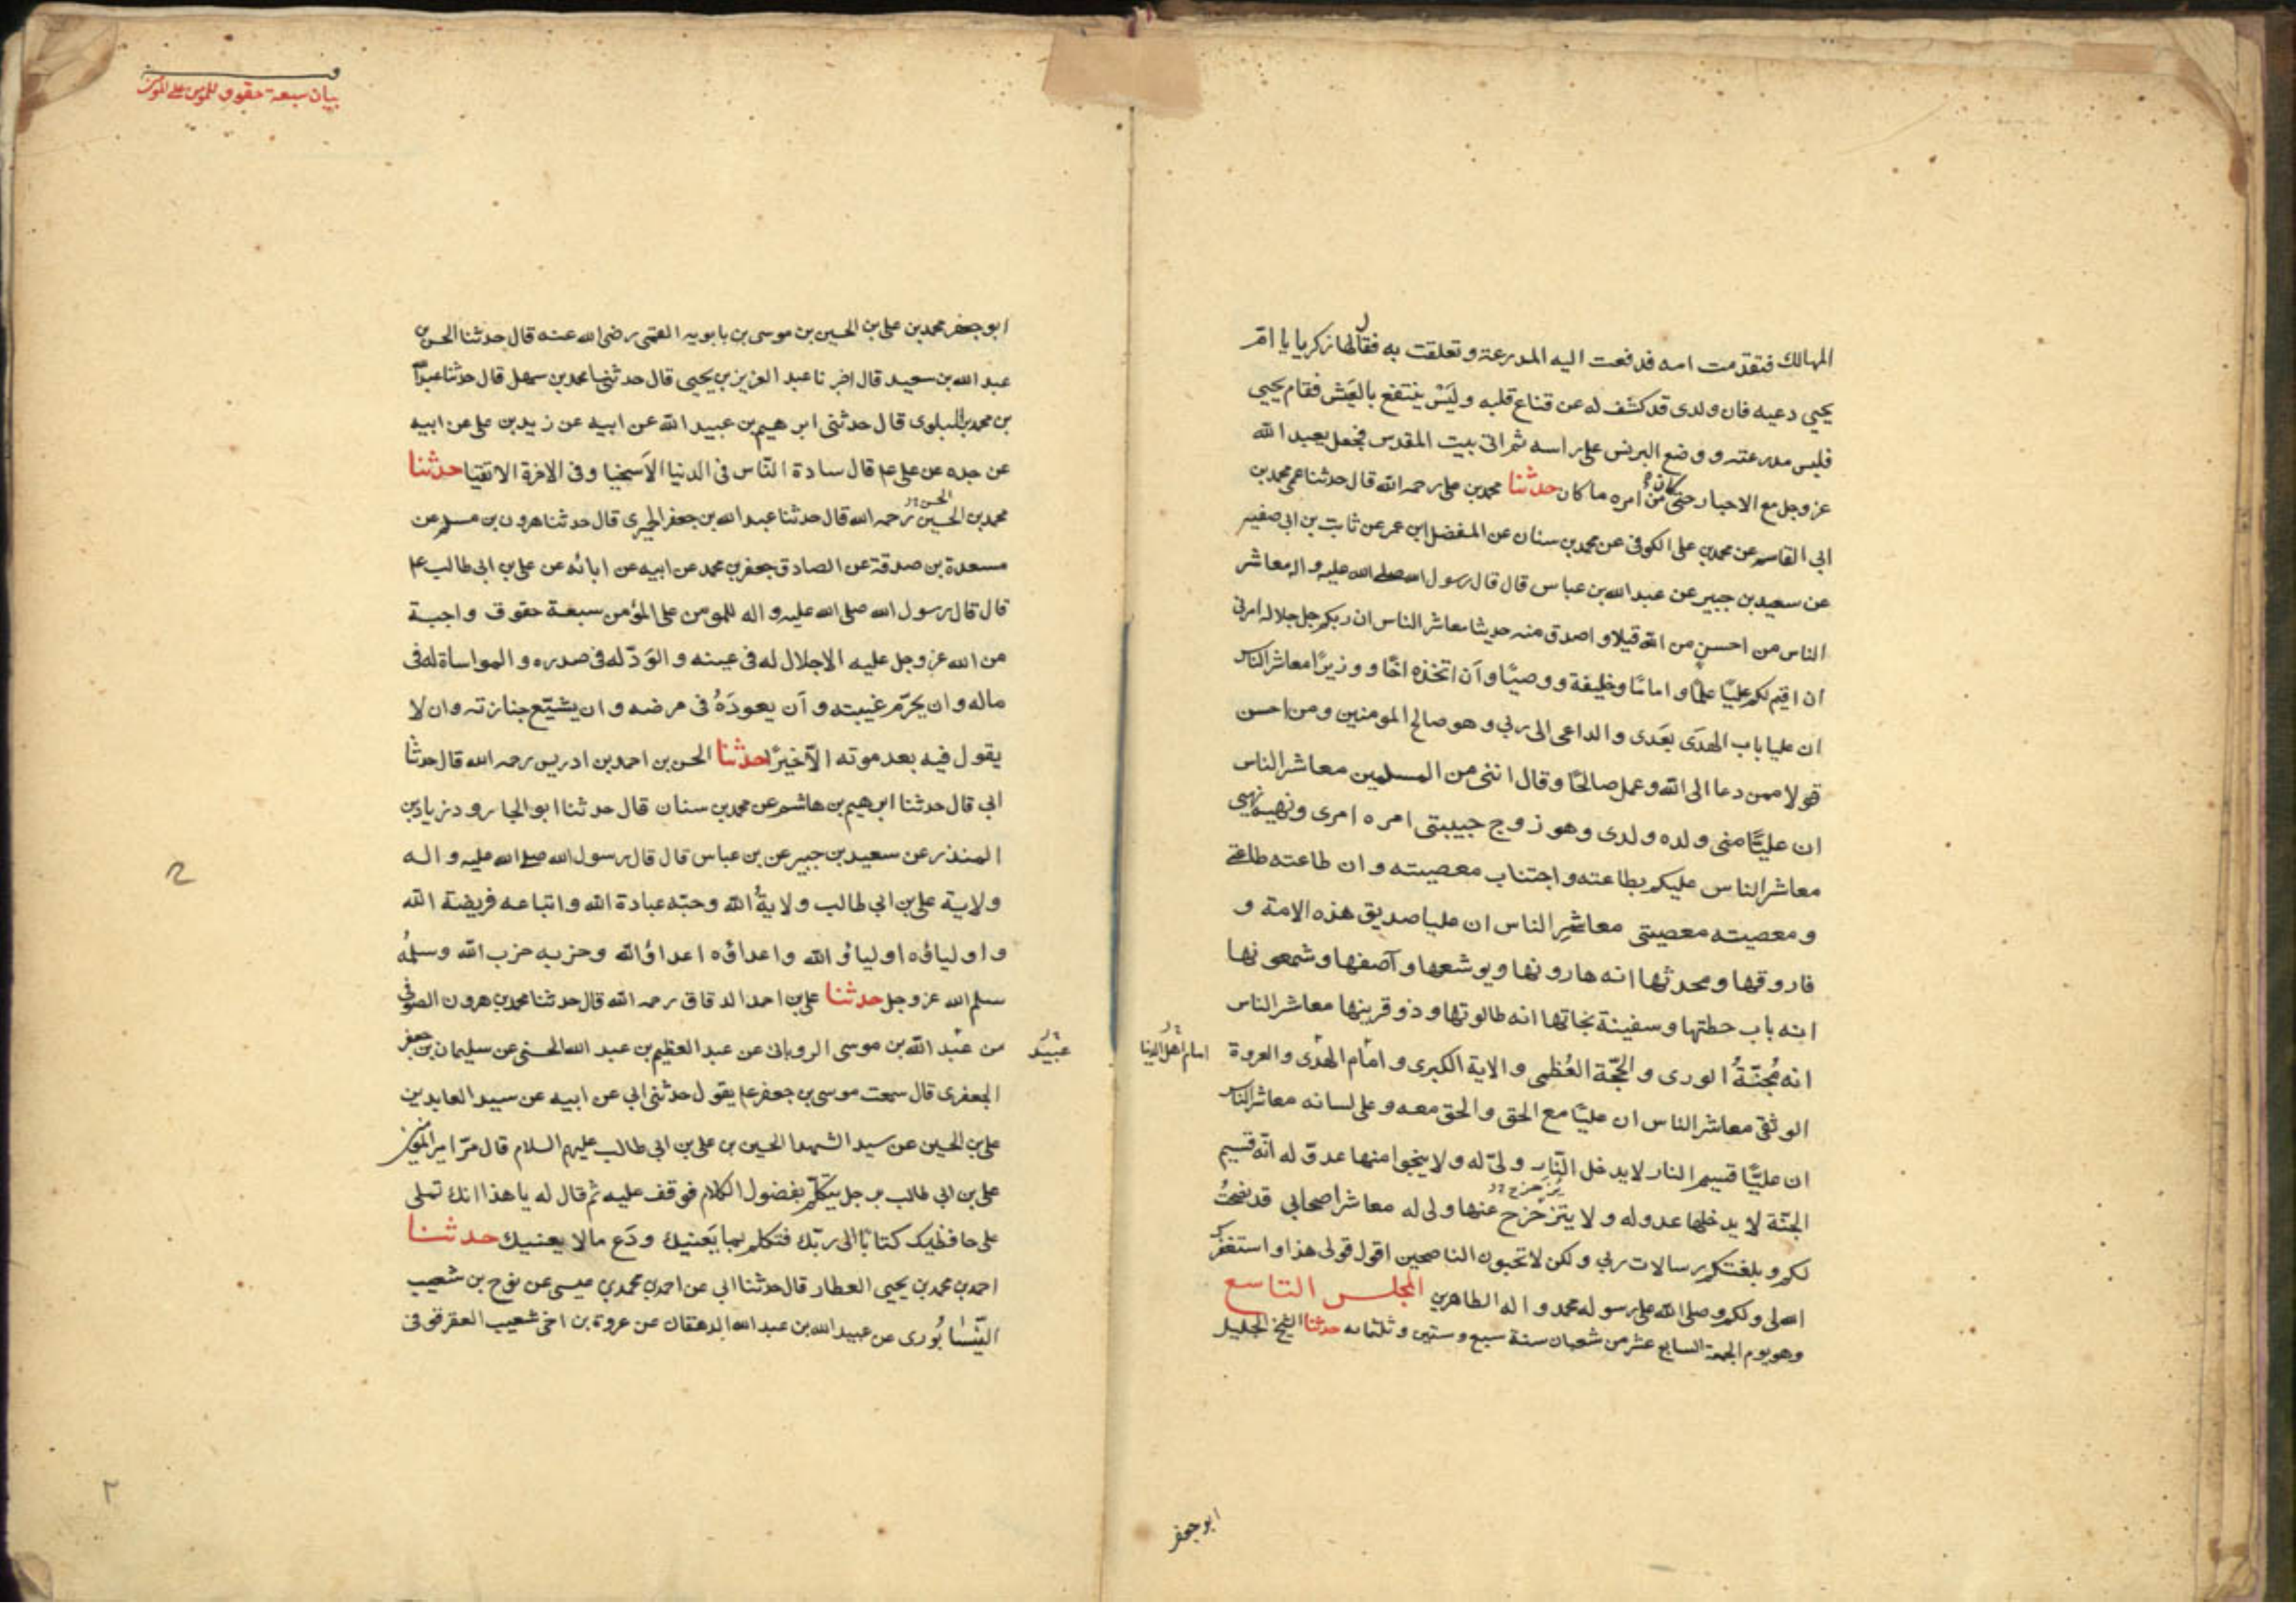 المهالك فتقدمت امه فدفعت اليه المدرعة وتعلقت به فقال لها زكريا يا امّ
يحيي دعيه فان ولدى قد كشف له عن قناع قلبه وليَسْ ينتفع بالعَيش فقام يحيي
فلبس مدرعته ووضع البرنس على راسه ثم اتى بيت المقدس فجعل يعبد الله
عز وجل مع الاحبار حتى كان من امره ما كان حدثنا محمد بن على رحمه الله قال حدثنا عمى محمد بن
ابي القاسم عن محمد بن على الكوفى عن محمد بن سنان عن المفضل ابن عمر عن ثابت بن ابى صفيه
عن سعيد بن جبير عن عبد الله بن عباس قال قال رسول الله صلى الله عليه واله معاشر
الناس من احسن من الله قيلا و اصدق منه حديثا معاشر الناس ان ربكم جل جلاله امرنى
ان اقيم لكم عليًا علمًا و امامًا وخليفة ووصيًا وآن اتخذه اخًا ووزيرًا معاشر الناس
ان عليا باب الهدَى بعَدى والداعى الى ربى وهو صالح المومنين ومن احسن
قولا ممن دعا الى الله وعمل صالحًا وقال اننى من المسلمين معاشر الناس
ان عليًّا منى ولده ولدى وهو زوج حبيبتى امره امرى ونهيه نهيى
معاشر الناس عليكم بطاعته واجتناب معصيته وان طاعته طاعتى
ومعصيته معصيتى معاشر الناس ان عليا صديق هذه الامة و
فاروقها ومحدثها انه هارونها ويوشعها وآصفها وشمعونها
انه باب حطتها وسفينة نجاتها انه طالوتها وذو قرينها معاشر الناس
انه مُحِنّةُ الورى والحجّة العُظمى والاية الكبرى و امام الهدَى والعروة
امام اهل الدنيا
الوثقى معاشر الناس ان عليًا مع الحق والحق معه وعلى لسانه معاشر الناس
ان عليًّا قسيم النار لا يدخل النّار ولىّ له ولا ينجوا منها عدوّ له انّه قسيم
الجنّة لا يدخلها عدو له ولا يتزحزح عنها ولى له معاشر اصحابى قد نصحتُ
لكم وبلغتكم رسالات ربى ولكن لا تحبون الناصحين اقول قولى هذا واستغفر
الله لى ولكم وصلى الله على رسوله محمد واله الطاهرين المجلس التاسع
وهو يوم الجمعة السابع عشر من شعبان سنة سبع وستين وثلثمائه حدثنا الشيخ الجليل
ابو جعفر
بيان سبعة حقوق للمومن على المومن
ابو جعفر محمد بن على بن الحسين بن موسى بن بابويه القمّى رضى الله عنه قال حدثنا الحسن بن
عبد الله بن سعيد قال اخبرنا عبد العزيز بن يحيى قال حدثنا محمد بن سهل قال حدثنا عبد الله
بن محمد البلوى قال حدثنى ابرهيم بن عبيد الله عن ابيه عن زيد بن على عن ابيه
عن جده عن على ع قال سادة النّاس فى الدنيا الاَسخيا وفى الاخرة الاتقيا حدثنا
محمد بن الحسين رحمه الله قال حدثنا عبد الله بن جعفر الحميرى قال حدثنا هرون بن مسلم عن
الحسن
مسعدة بن صدقة عن الصادق جعفر بن محمد عن ابيه عن ابائه عن على بن ابى طالب ع
قال قال رسول الله صلى الله عليه واله للمومن على المؤمن سبعة حقوق واجبة
من الله عز وجل عليه الاجلال له فى عينه والوَدّ له فى صدره والمواساة له فى
ماله وان يحرّم غيبته وآن يعودَهُ فى مرضه وان يشيّع جنازته وان لا
يقول فيه بعد موته الّا خيرًا حدثنا الحسن بن احمد بن ادريس رحمه الله قال حدثنا
ابى قال حدثنا ابرهيم بن هاشم عن محمد بن سنان قال حدثنا ابو الجارود زياد بن
المنذر عن سعيد بن جبير عن بن عباس قال قال رسول الله صلى الله عليه واله
ولاية على بن ابى طالب ولايةُ الله وحبّه عبادة الله واتباعه فريضة الله
واولياؤه اولياؤ الله واعداؤه اعداؤ الله وحزبه حزب الله وسلمُه
سلم الله عز وجل حدثنا على بن احمد الدقاق رحمه الله قال حدثنا محمد بن هرون الصوفى
عن عبْد الله بن موسى الرويانى عن عبد العظيم بن عبد الله الحسنى عن سليمان بن جعفر
عبيد
الجعفرى قال سمعت موسى بن جعفر ع يقول حدثنى ابى عن ابيه عن سيد العابدين
على بن الحسين عن سيد الشهدا الحسين بن على بن ابى طالب عليهم السلام قال مرّ امير المومنين
على بن ابى طالب برجل يتكلّم بفضول الكلام فوقف عليه ثم قال له يا هذا انك تملى
على حافظيك كتابًا الى ربّك فتكلم بما يَعنيك ودَع مالا يعنيك حدثنا
احمد بن محمد بن يحيى العطار قال حدثنا ابى عن احمد بن محمد بن عيسى عن نوح بن شعيب
النّيسَابُورى عن عبيد الله بن عبد الله الدهقان عن عروة بن اخى شعيب العقرقوفى
٢